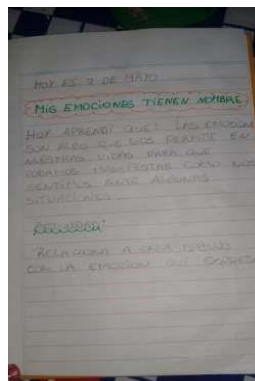 HOY ES 7 DE MAYO
MIS EMOCIONES TIENEN NOMBRE
HOY APRENDÍ QUE: LAS EMOCION
SON ALGO QUE NOS PERMITE EN
NUESTRAS VIDAS PARA QUE
PODAMOS MANIFESTAR COMO NOS
SENTIMOS ANTE ALGUNAS
SITUACIONES.
RELACIONA A CADA
CON LA EMOCION QUE EXPRESA